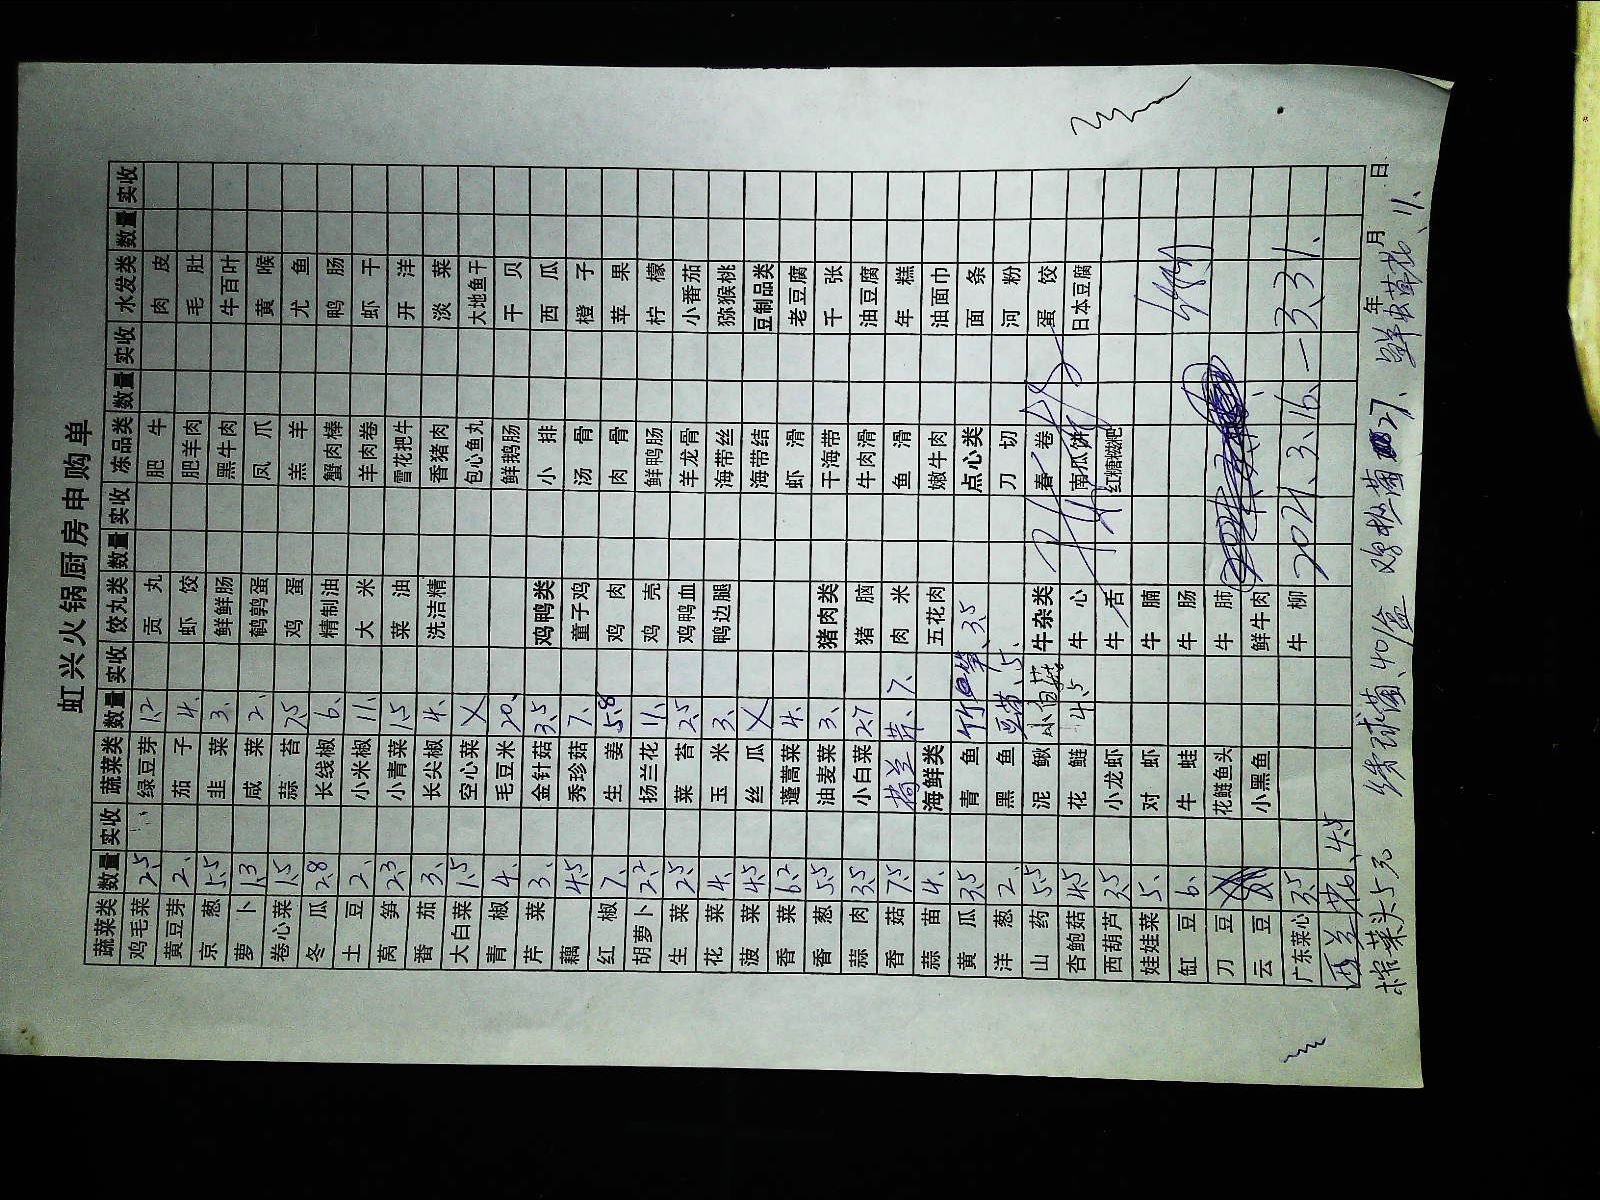 虹兴火锅厨房申购单
蔬菜类 数量 实收 蔬菜类 数量 实收 饺丸类 数量 实收 冻品类 数量 实收 水发类 数量 实收
鸡毛菜 2.5 绿豆芽 1.2 贡丸 肥牛 肉皮
黄豆芽 2、 茄子 4、 虾饺 肥羊肉 毛肚
京葱 5.5 韭菜 3、 鲜鲜肠 黑牛肉 牛百叶
萝卜 1.3 咸菜 2、 鹌鹑蛋 凤爪 黄喉
卷心菜 1.5 蒜苔 7.5 鸡蛋 羔羊 尤鱼
冬瓜 2.8 长线椒 6、 精制油 蟹肉棒 鸭肠
土豆 2、 小米椒 11、 大米 羊肉卷 虾干
莴笋 2.3 小青菜 1.5 菜油 雪花把牛 开洋
番茄 3、 长尖椒 4、 洗洁精 香猪肉 淡菜
大白菜 1.5 空心菜 X 包心鱼丸 大地鱼干
青椒 4、 毛豆米 20、 鲜鹅肠 干贝
芹菜 3、 金针菇 3.5 鸡鸭类 小排 西瓜
藕 4.5 秀珍菇 7、 童子鸡 汤骨 橙子
红椒 7、 生姜 5.8 鸡肉 肉骨 苹果
胡萝卜 2.2 扬兰花 11、 鸡壳 鲜鸭肠 柠檬
生菜 2.5 菜苔 2.5 鸡鸭血 羊龙骨 小番茄
花菜 4、 玉米 3、 鸭边腿 海带丝 猕猴桃
菠菜 4.5 丝瓜 X 海带结 豆制品类
香菜 6.2 蓬蒿菜 4、 虾滑 老豆腐
香葱 5.5 油麦菜 3、 猪肉类 干海带 千张
蒜肉 3.5 小白菜 2.7 猪脑 牛肉滑 油豆腐
香菇 7.5 荷兰芹 7、 肉米 鱼滑 年糕
蒜苗 4、 海鲜类 五花肉 嫩牛肉 油面巾
黄瓜 3.5 青鱼 3.5 点心类 面条
洋葱 2、 黑鱼 豆苗、5、 刀切 河粉
山药 5.5 泥鳅 牛杂类 春卷 蛋饺
杏鲍菇 4.5 花鲢 4.5 牛心 南瓜饼 日本豆腐
西葫芦 3.5 小龙虾 牛舌 红糖糍粑
娃娃菜 5、 对虾 牛腩
缸豆 6、 牛蛙 牛肠
刀豆 花鲢鱼头 牛肺
云豆 小黑鱼 鲜牛肉
广东菜心 3.5 牛柳 2021、3、16、—3、31、
西兰花、4.5
年 月 日
榨菜头5元 绣球菌、40/盒 鸡枞菌 27、 鲜虫草花、11、